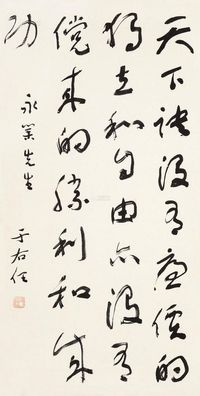 天下決沒有廉價的
獨立和自由亦沒有
儻來的勝利和成
功
永業先生
于右任